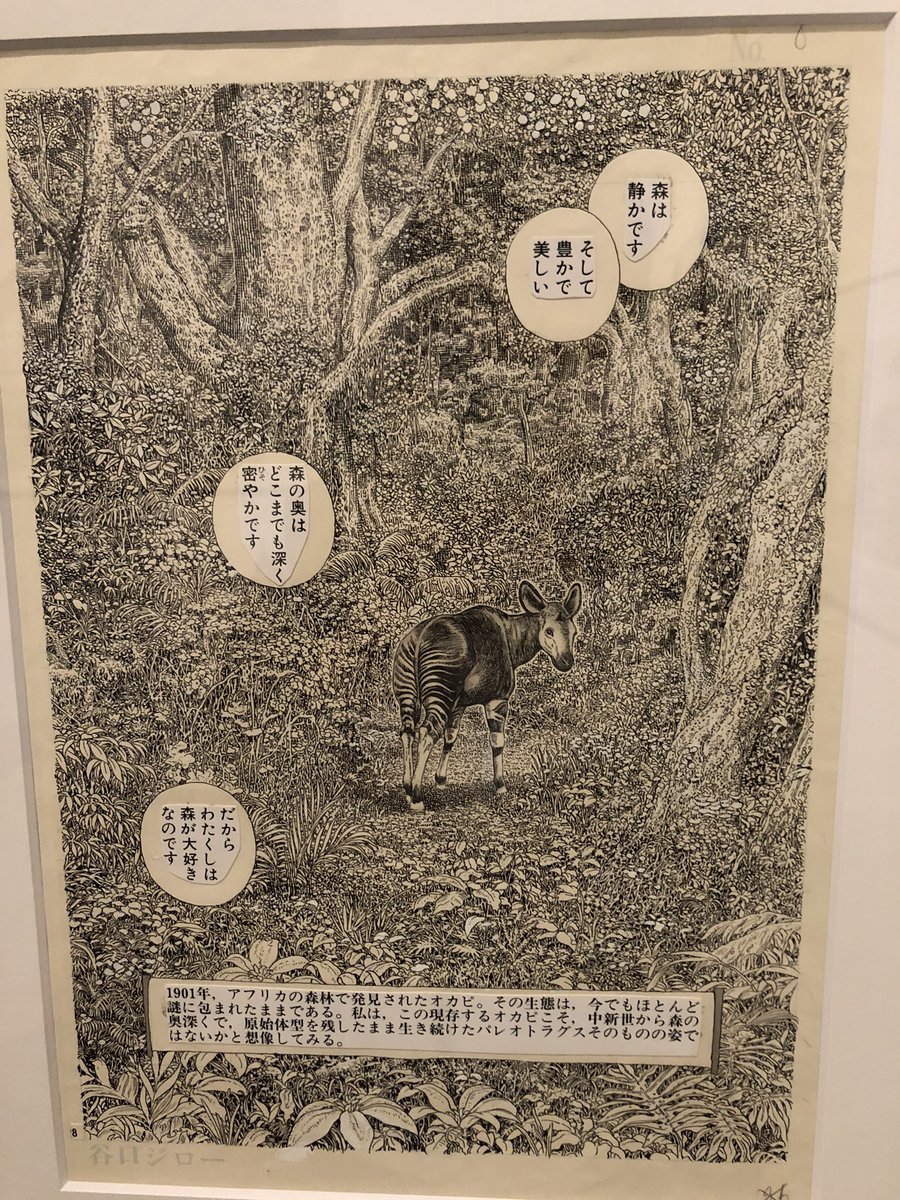 No.
6
森は
静かです
そして
豊かで
美しい
森の奥は
どこまでも深く
密やかです
ひそ
だから
わたくしは
森が大好き
なのです
1901年，アフリカの森林で発見されたオカピ。その生態は，今でもほとんど
謎に包まれたままである。私は，この現存するオカピこそ，中新世から森の
奥深くで，原始体型を残したまま生き続けたパレオトラグスそのものの姿で
はないかと想像してみる。
8
谷口ジロー